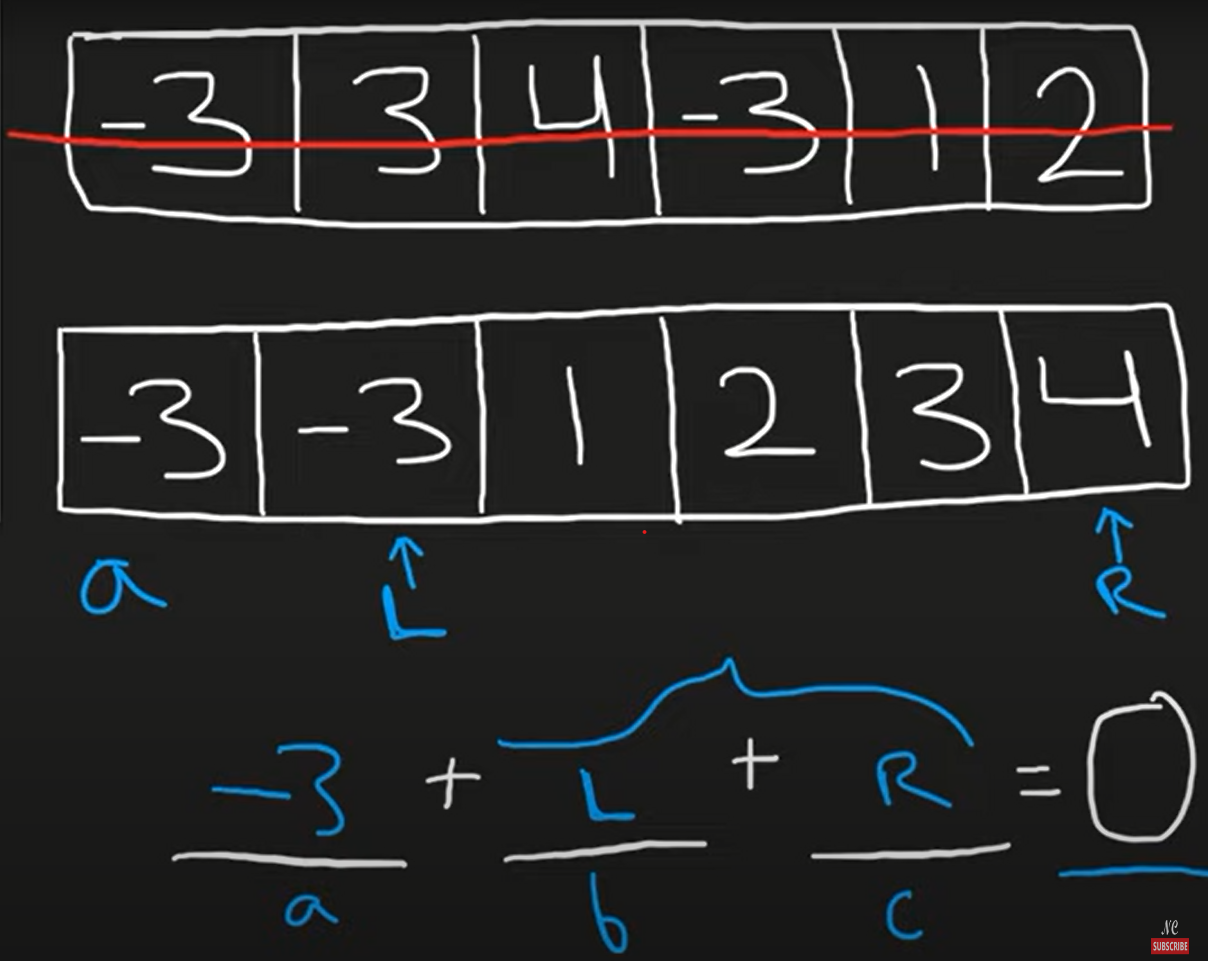 -3 3 4 -3 1 2
-3 -3 1 2 3 4
a L R
-3 + L + R = 0
a b c
NC
SUBSCRIBE